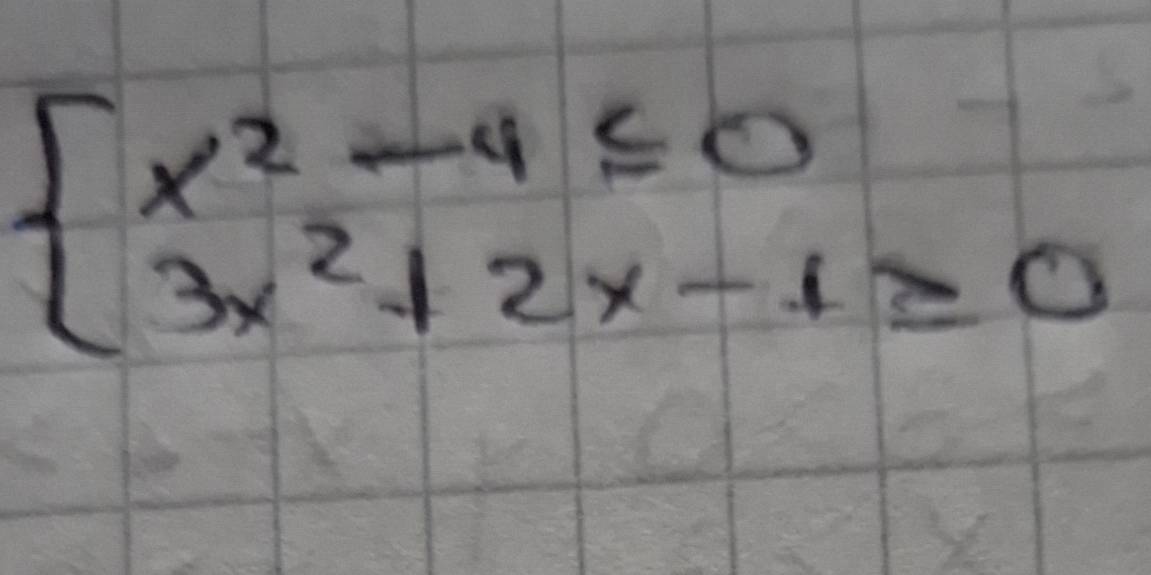 x² - 4 ≤ 0
3x² + 2x - 1 ≥ 0